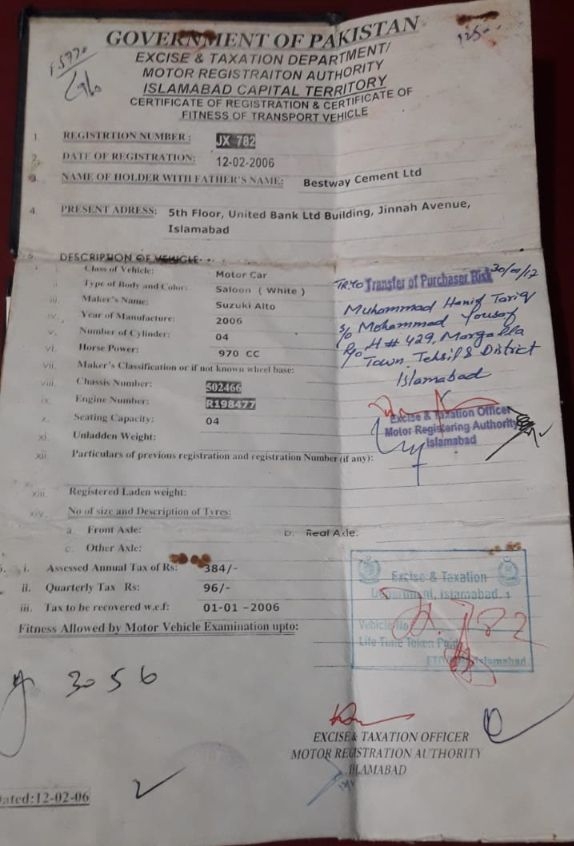 GOVERNMENT OF PAKISTAN
125-
EXCISE & TAXATION DEPARTMENT/
MOTOR REGISTRAITON AUTHORITY
ISLAMABAD CAPITAL TERRITORY
CERTIFICATE OF REGISTRATION & CERTIFICATE OF
FITNESS OF TRANSPORT VEHICLE
1. REGISTRTION NUMBER : JX 782
2. DATE OF REGISTRATION: 12-02-2006
3. NAME OF HOLDER WITH FATHER'S NAME: Bestway Cement Ltd
4. PRESENT ADRESS: 5th Floor, United Bank Ltd Building, Jinnah Avenue,
Islamabad
5. DESCRIPTION OF VEHICLE
i. Class of Vehicle: Motor Car
ii. Type of Body and Color: Saloon ( White )
iii. Maker's Name: Suzuki Alto
iv. Year of Manufacture: 2006
v. Number of Cylinder: 04
vi. Horse Power: 970 CC
vii. Maker's Classification or if not known wheel base:
viii. Chassis Number: 502466
ix. Engine Number: R198477
x. Seating Capacity: 04
xi. Unladden Weight:
xii. Particulars of previous registration and registration Number (if any):
xiii. Registered Laden weight:
xiv. No of size and Description of Tyres:
a. Front Axle: b. Real Axle:
c. Other Axle:
i. Assessed Annual Tax of Rs: 384/-
ii. Quarterly Tax Rs: 96/-
iii. Tax to be recovered w.e.f: 01-01 -2006
Fitness Allowed by Motor Vehicle Examination upto:
Transfer of Purchaser Risk
Muhammad Hanif Tariq
S/o Mohammad Yousaf
R/o H # 429, Margalla
Town Tehsil & District
Islamabad
Excise & Taxation Officer
Motor Registering Authority
Islamabad
Excise & Taxation
Department, Islamabad.
Vehicle No
782
Life Time Token Paid
Islamabad
3056
EXCISE & TAXATION OFFICER
MOTOR REGISTRATION AUTHORITY
ISLAMABAD
Dated:12-02-06